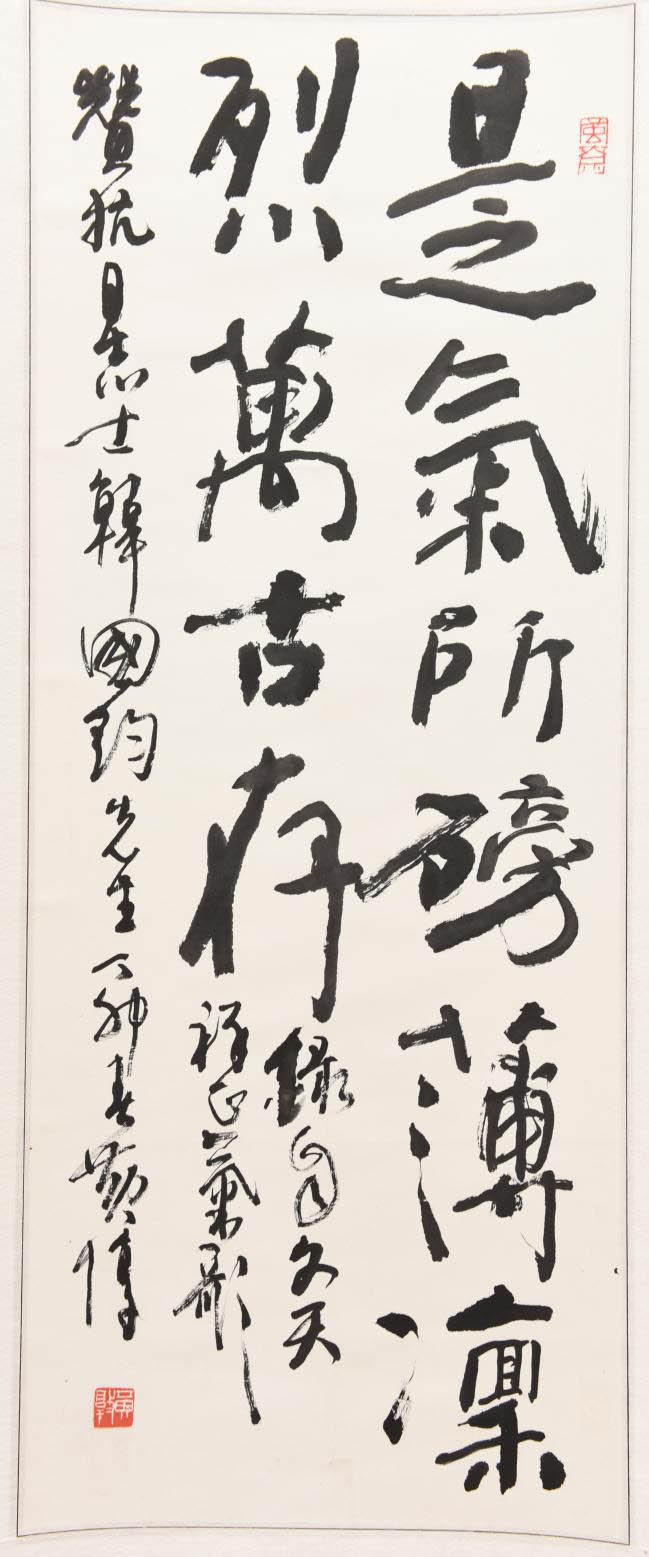 是氣所磅薄凜
烈萬古存
錄自文天
祥正氣歌
贊抗日志士韓國鈞先生丁卯春黃惇